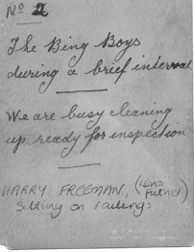 No 2
The Bing Boys
during a brief interval
We are busy cleaning
up ready for inspection
HARRY FREEMAN, (Lens
Father)
Sitting on railings